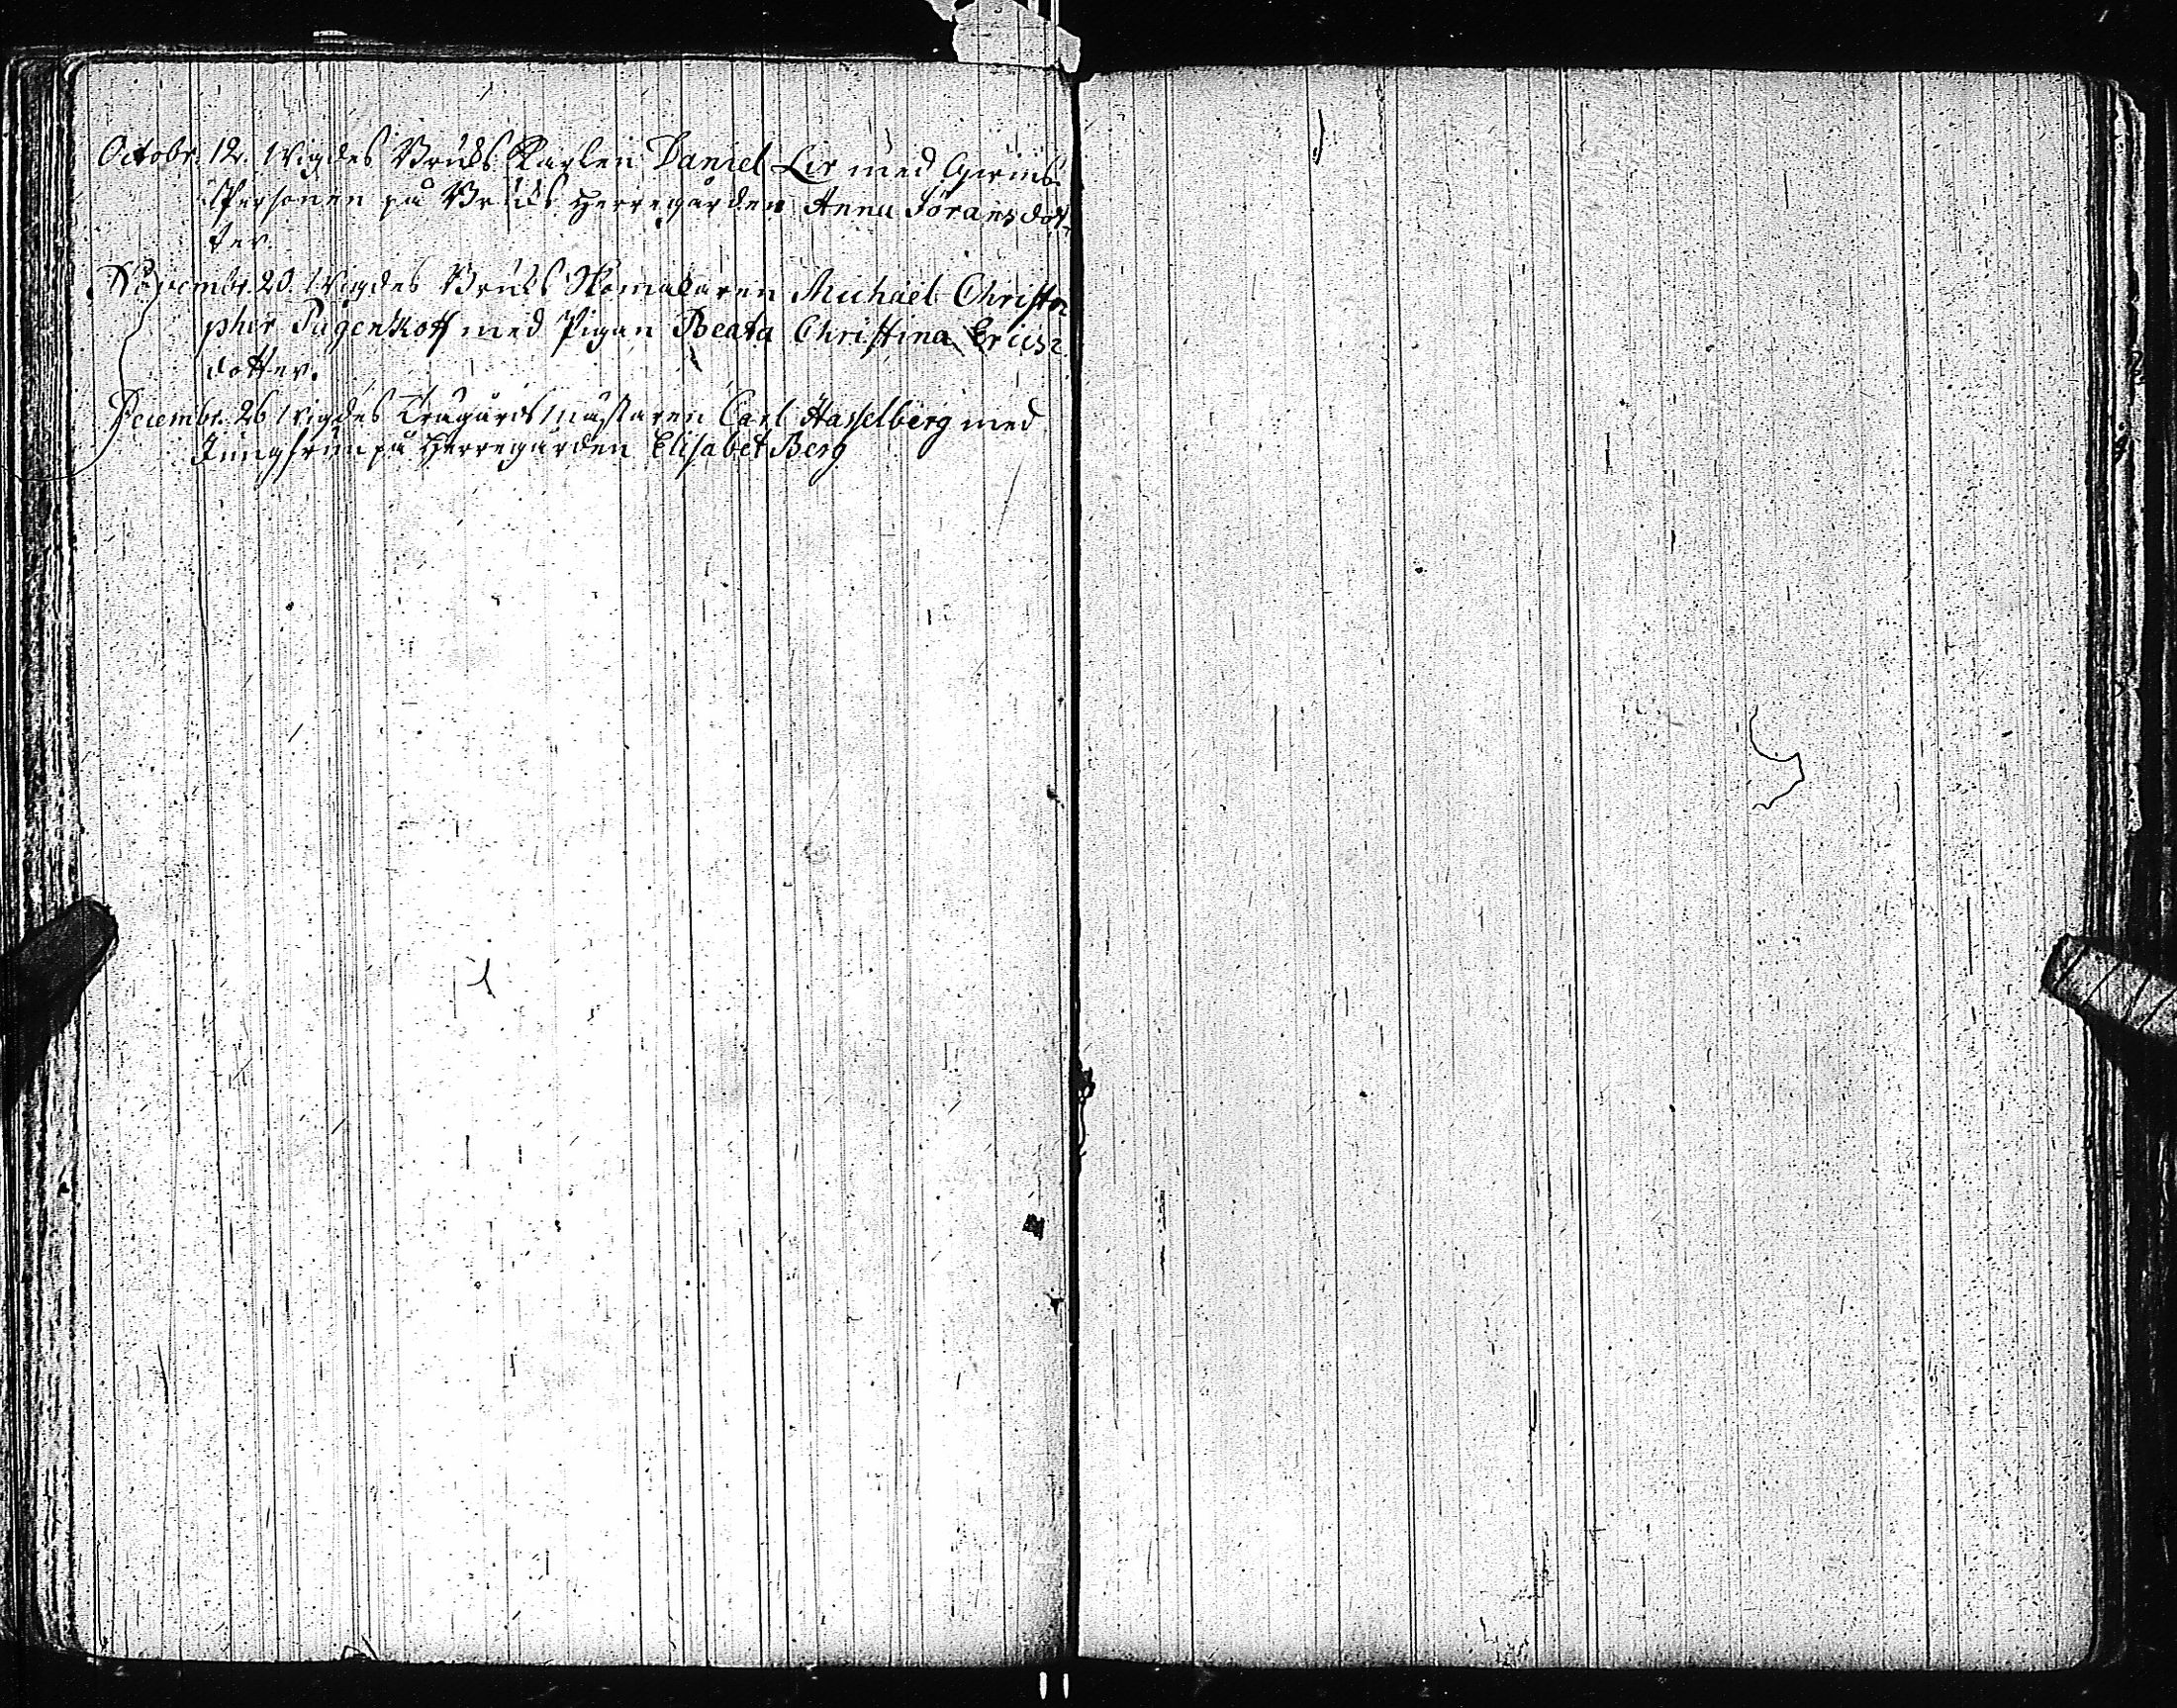 Octobr. 12. Wigdes Bruks Karlen Daniel Lir med Qwins
Personen på Bruks Herregården Anna Joransdot-
ter.
Novembr. 20. Wigdes Bruks Skomakaren Michaël Christo
pher Pagenkoff med Pigan Beata Christina Ericsz
dotter.
Decembr. 26 Wigdes Trägårdsmästaren Carl Hasselberg med
Jungfrun på Herregården Elisabet Berg